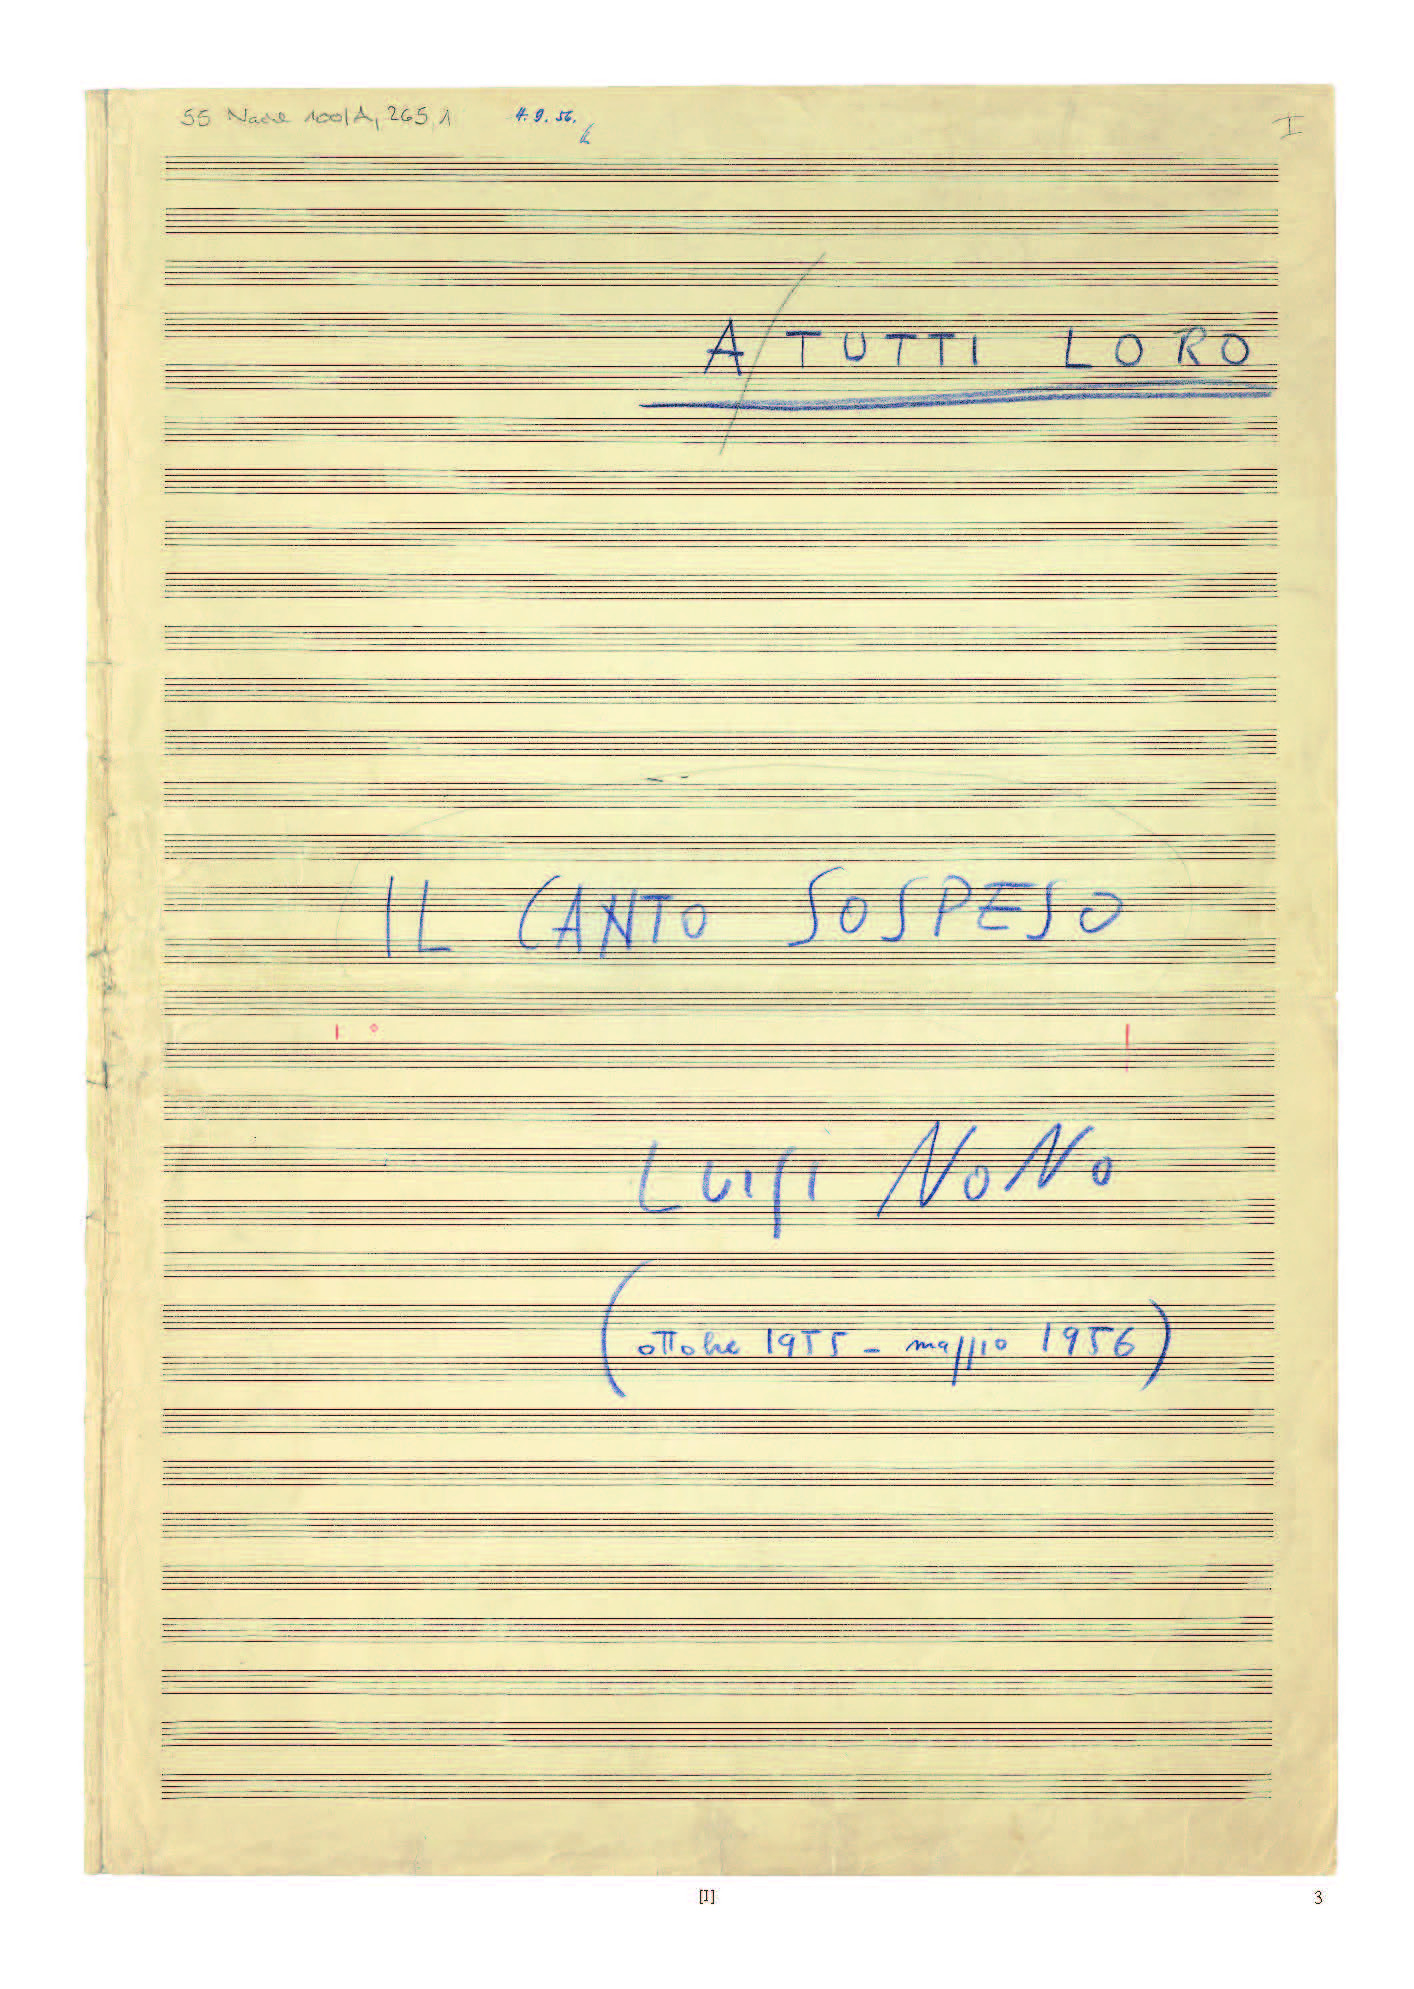 55 Nachl 100/A, 265, 1 4. 9. 56. I
A TUTTI LORO
IL CANTO SOSPESO
LUIGI NONO
(ottobre 1955 - maggio 1956)
[I] 3